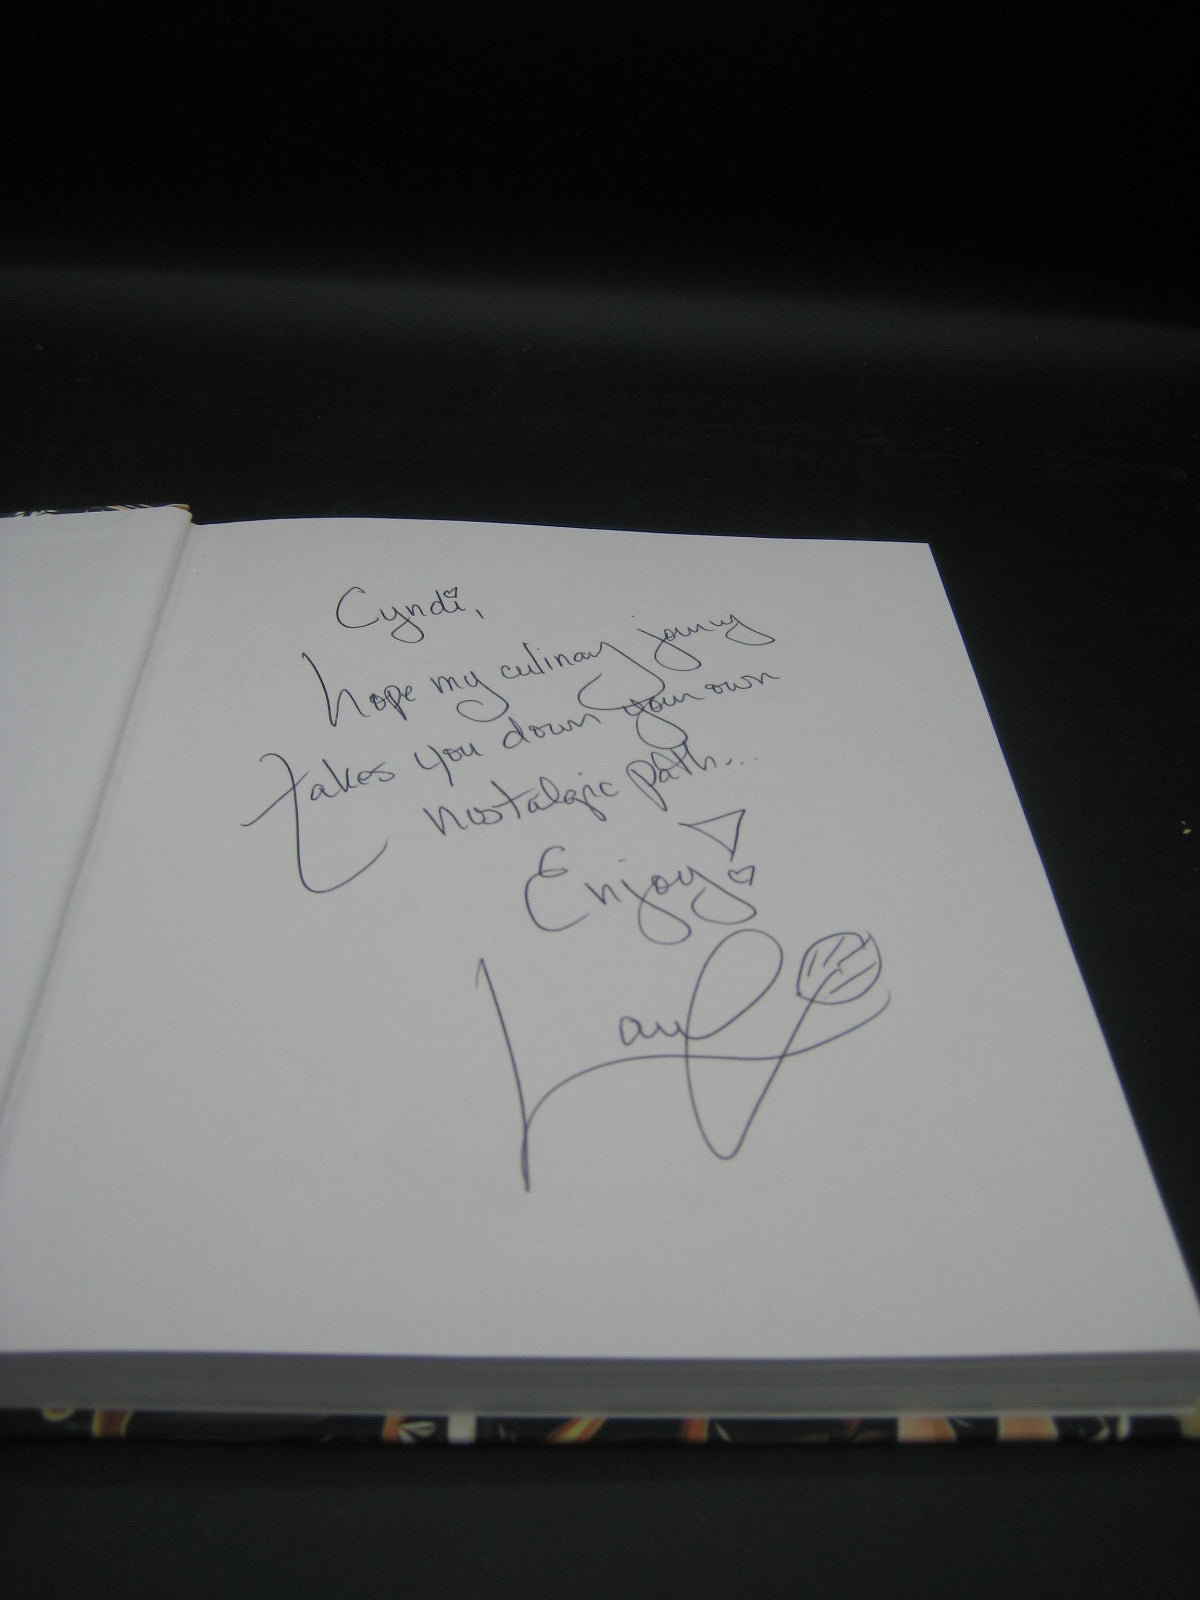 Cyndi,
hope my culinary journey
takes you down your own
nostalgic path...
Enjoy!